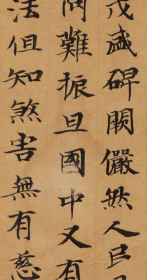 茂盛碑闕儼然人戶
問難振旦國中又有
法但知煞害無有慈